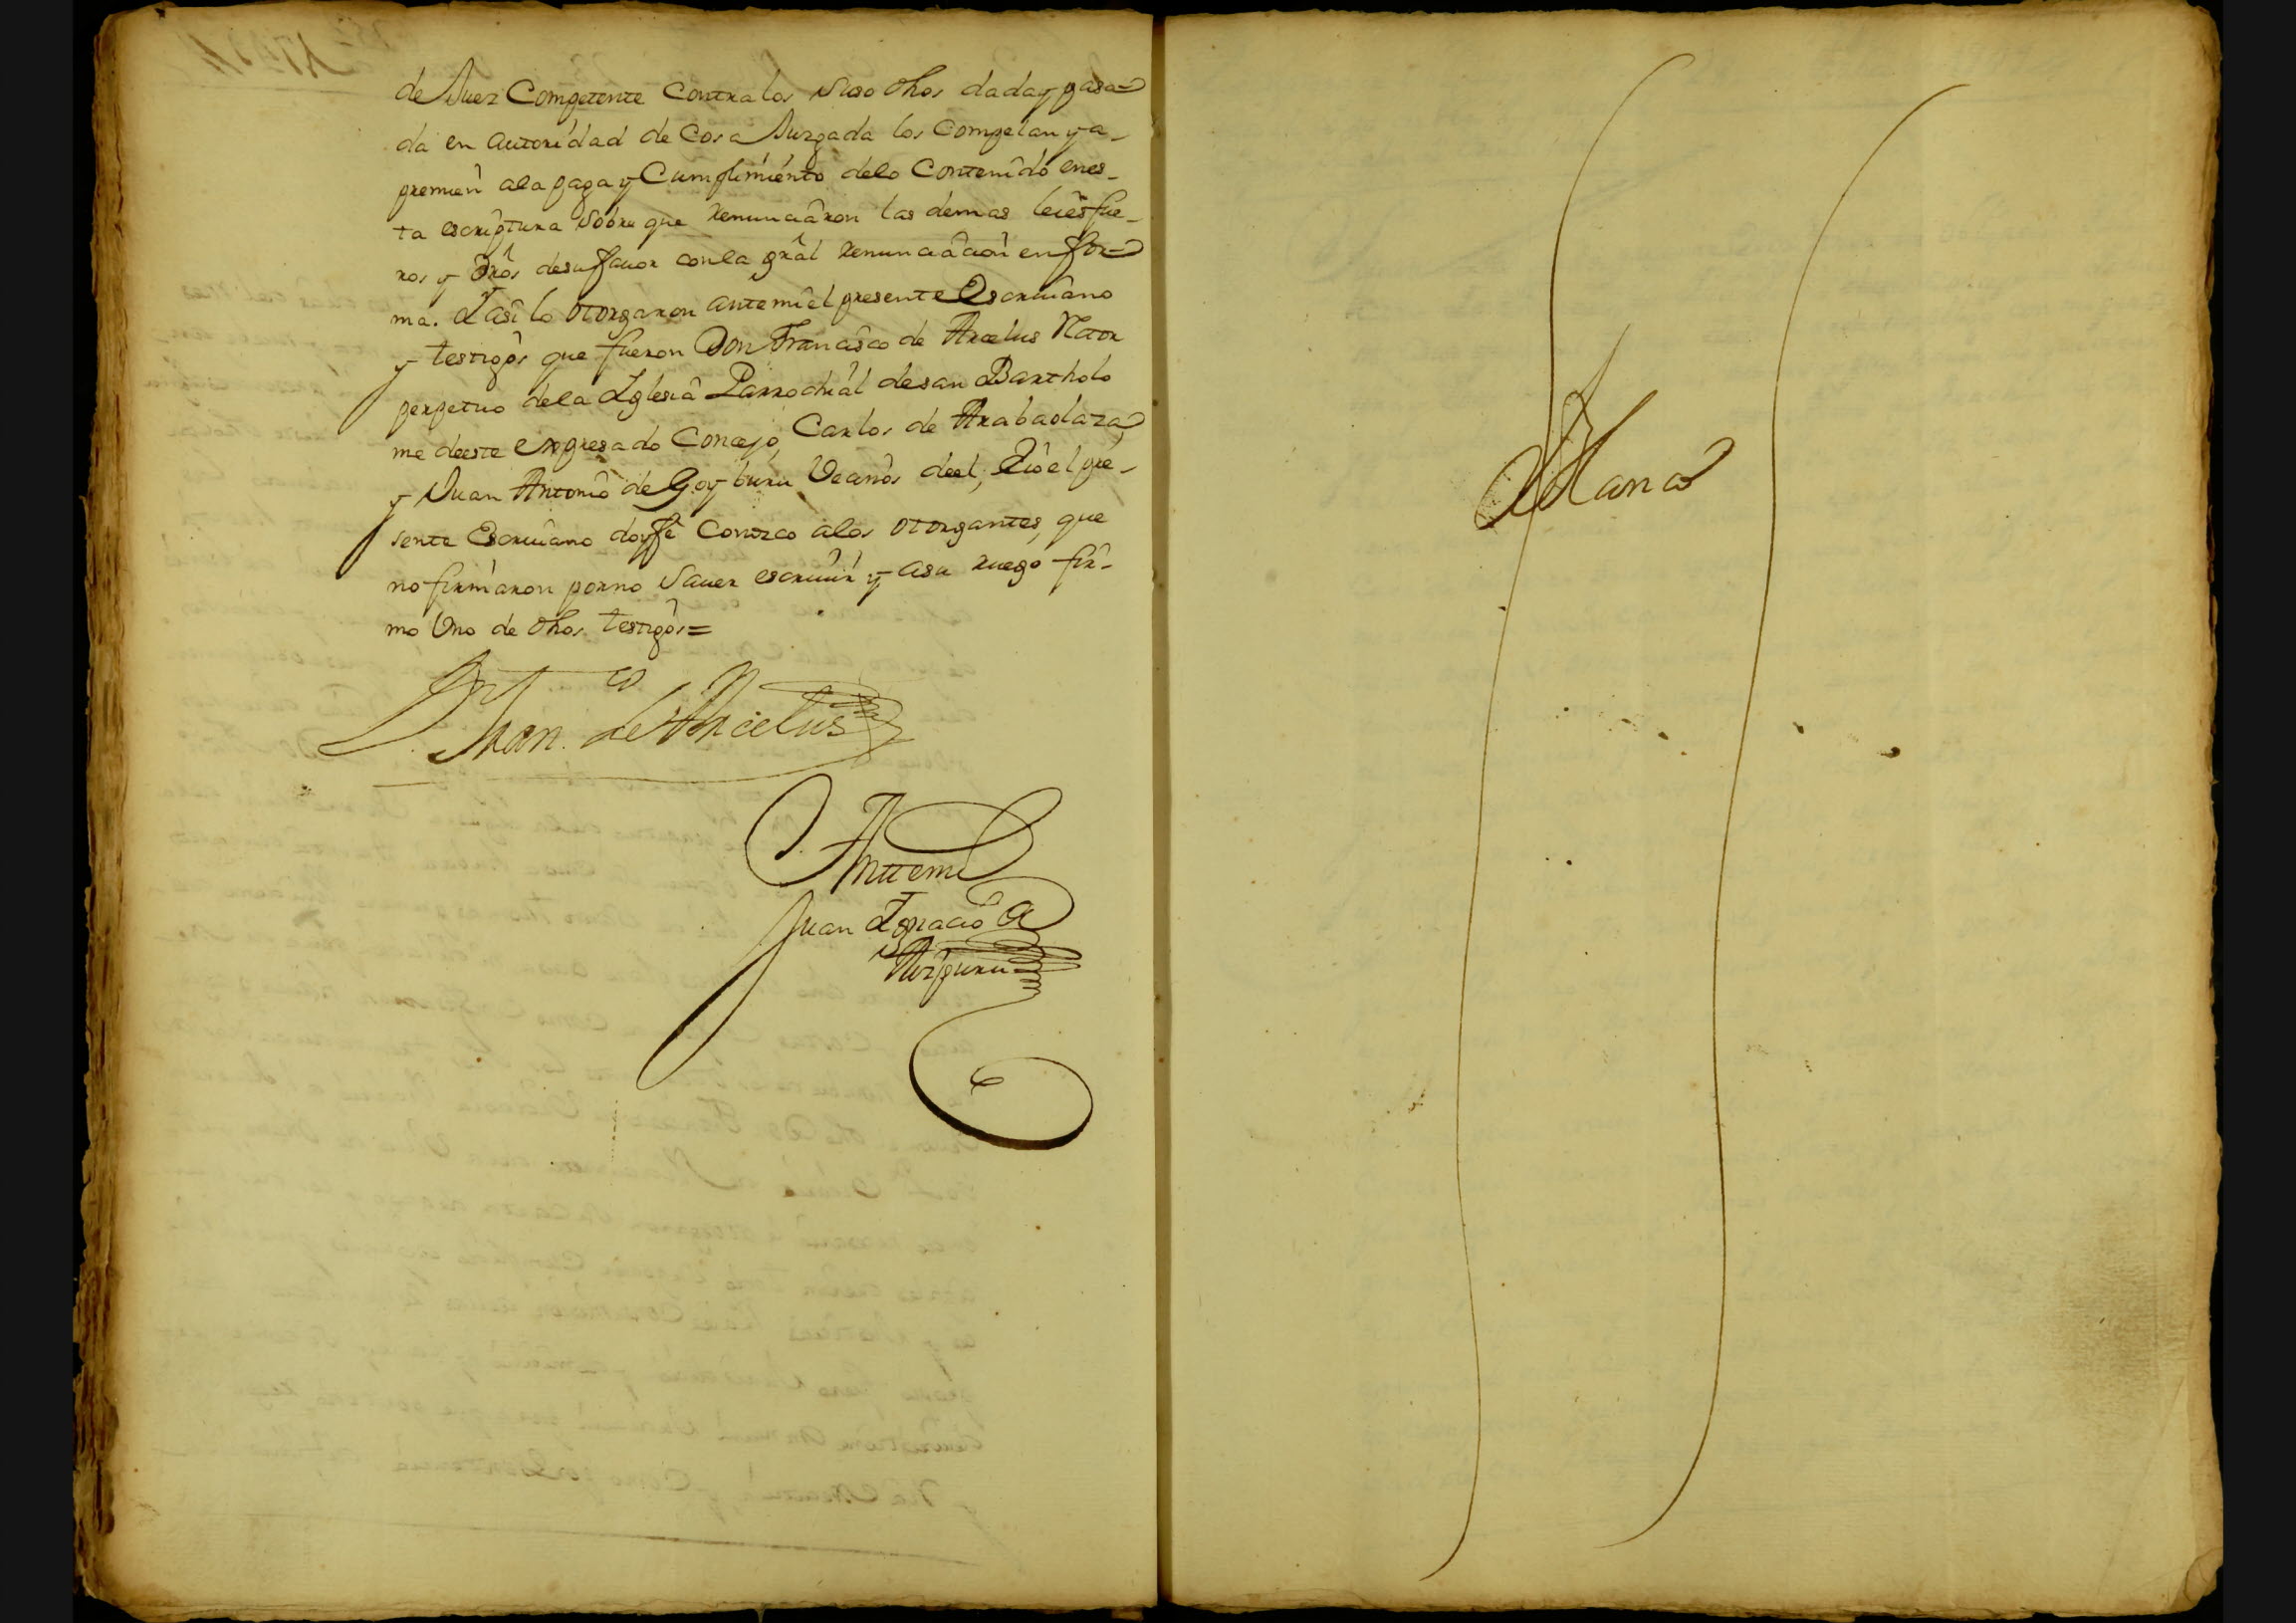 de Juez Competente Contra los suso dhos dada y pasa=
da en autoridad de Cosa Juzgada los Compelan y a-
premien a la paga y Cumplimiento delo Contenido en es-
ta escriptura sobre que renunciaron las demas leies fue-
ros y dros de su fauor con la gral renunciacion en for=
ma. Y asi lo otorgaron ante mi el presente Escriuano
y testigos que fueron Don Francisco de Arcelus Rector
perpetuo de la Iglesia Parrochial de san Bartholo
me de este expresado Concejo, Carlos de Arabaolaza,
y Juan Antonio de Goyburu Vecinos de el, E io el pre-
sente Escriuano doy fe Conozco a los otorgantes, que
no firmaron por no Sauer escriuir y a su ruego fir-
mo Uno de dhos testigos=
D. Fran.co de Arcelus
Antte mi
Juan Ignacio de
Aizpuru